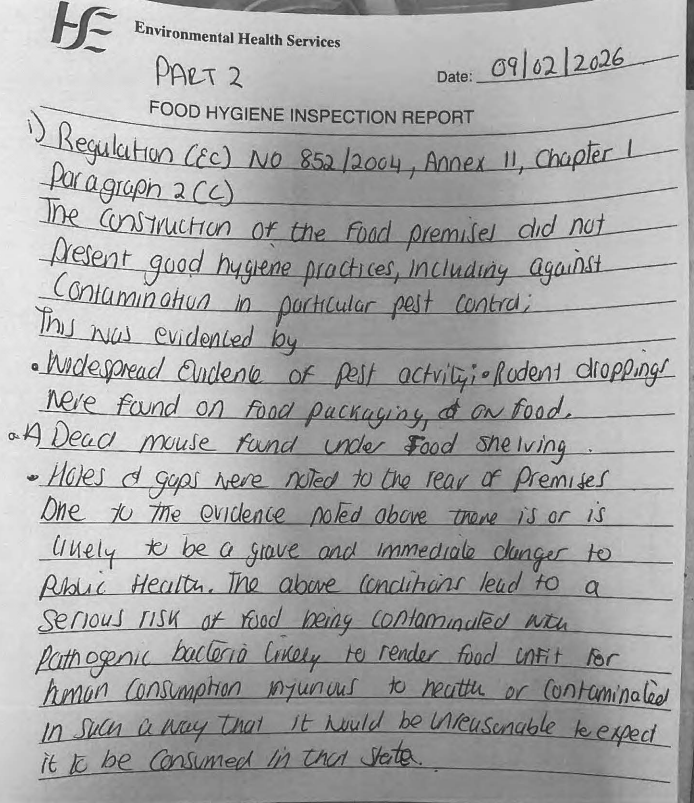 HSE Environmental Health Services
PART 2
Date: 09/02/2026
FOOD HYGIENE INSPECTION REPORT
i) Regulation (EC) NO 852/2004, Annex II, Chapter I
Paragraph 2 (C)
The Construction of the food premises did not
present good hygiene practices, including against
Contamination in particular pest control;
This was evidenced by
• Widespread Evidence of Pest activity; • Rodent droppings
were found on food packaging, & on food.
• A Dead mouse found under food shelving.
• Holes & gaps were noted to the rear of Premises
Due to the evidence noted above there is or is
likely to be a grave and immediate danger to
Public Health. The above Conditions lead to a
Serious risk of food being contaminated with
Pathogenic bacteria likely to render food unfit for
human Consumption injurious to health or Contaminated
in such a way that it would be unreasonable to expect
it to be Consumed in that state.